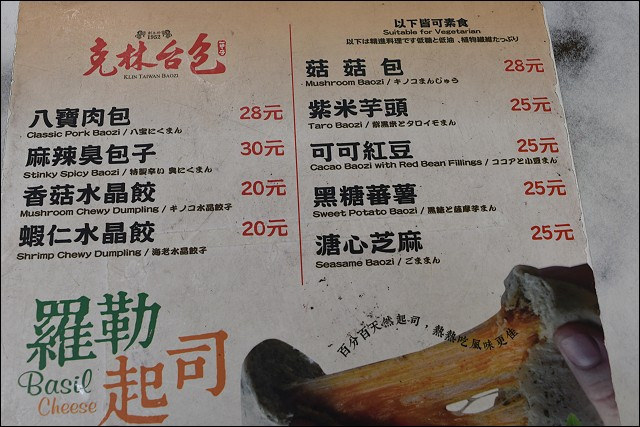 創業於
1952
克林台包
KLIN TAIWAN BAOZI
八寶肉包 28元
Classic Pork Baozi / 八宝にくまん
麻辣臭包子 30元
Stinky Spicy Baozi / 特製辛い 臭にくまん
香菇水晶餃 20元
Mushroom Chewy Dumpling / キノコ水晶餃子
蝦仁水晶餃 20元
Shrimp Chewy Dumpling / 海老水晶餃子
以下皆可素食
Suitable for Vegetarian
以下は精進料理です低糖と低油、植物繊維たっぷり
菇菇包 28元
Mushroom Baozi / キノコまんじゅう
紫米芋頭 25元
Taro Baozi / 紫黒米とタロイモまん
可可紅豆 25元
Cacao Baozi with Red Bean Fillings / ココアと小豆まん
黑糖蕃薯 25元
Sweet Potato Baozi / 黒糖と薩摩芋まん
溏心芝麻 25元
Seasame Baozi / ごままん
羅勒
起司
Basil
Cheese
百分百天然起司，熱熱吃風味更佳